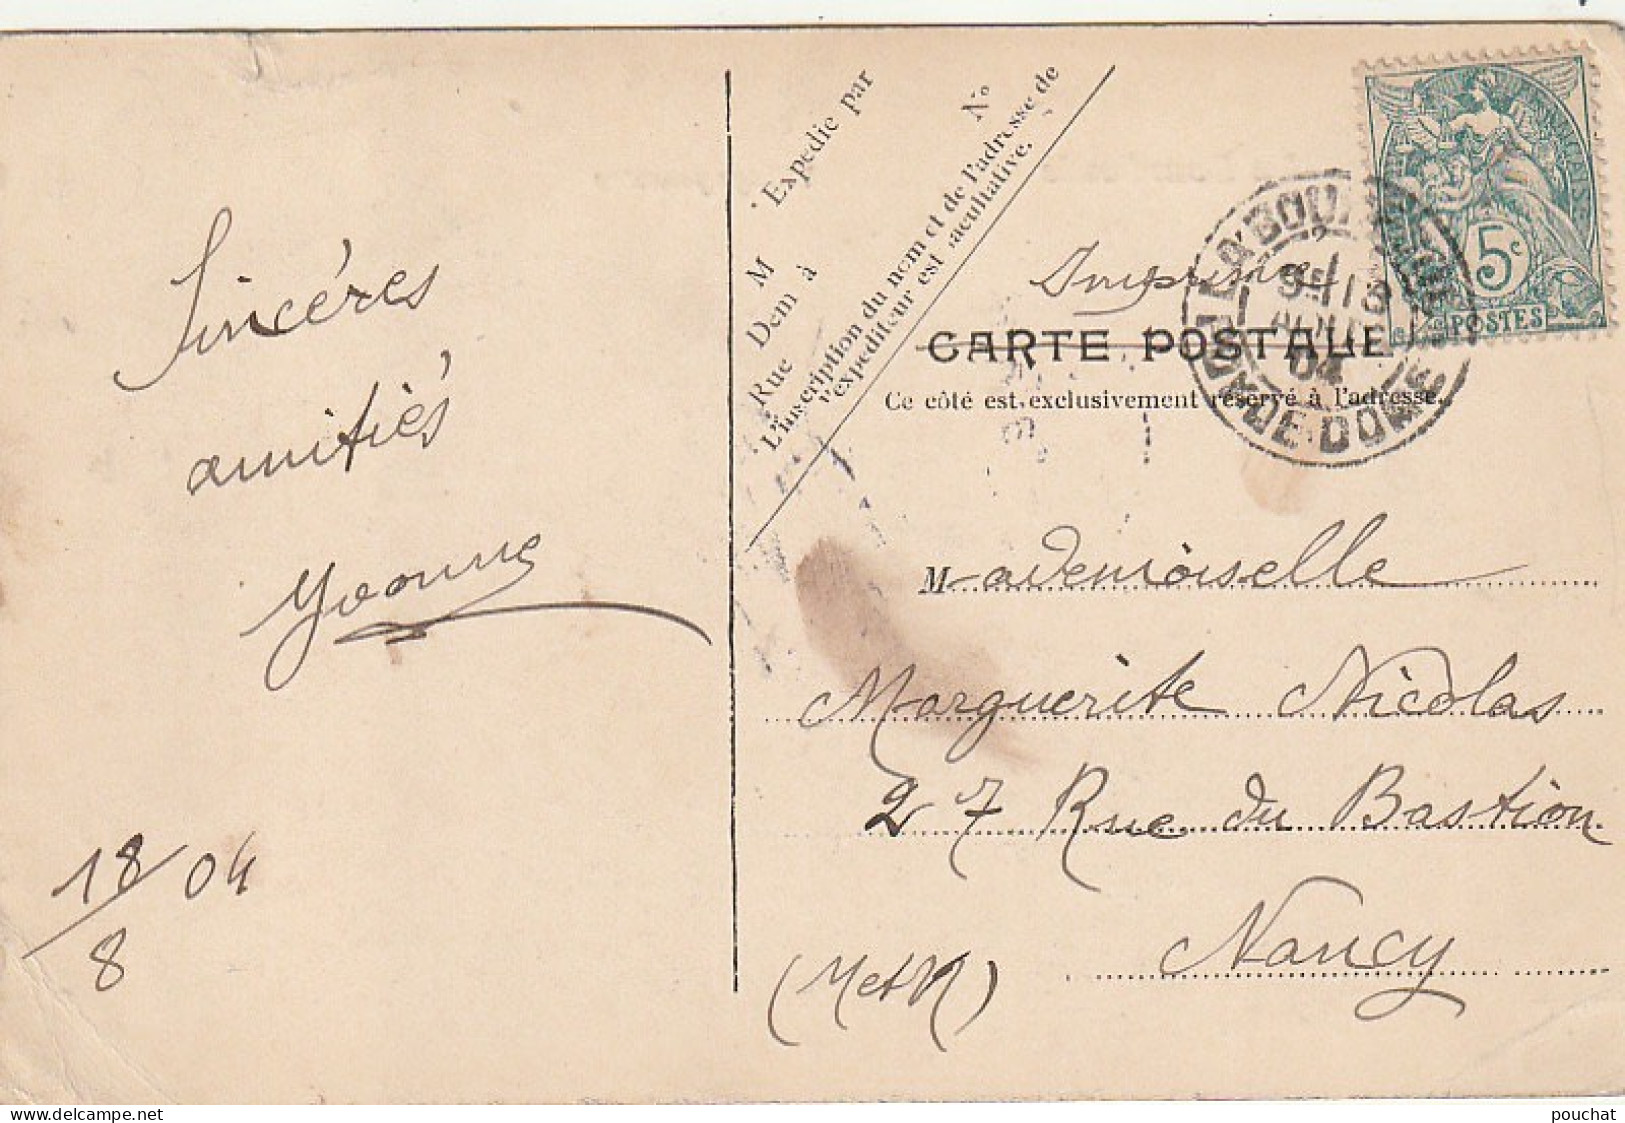 Sincéres
amitiés
Yvonne
18/8 04
Expedie par
M
M
Dem à
Rue
N°
L'inscription du nom et de l'adresse de
l'expediteur est facultative.
Imprimé
CARTE POSTALE
Ce côté est exclusivement réservé à l'adresse.
LA BOURBOULE
04
PUY-DE-DOME
5c
POSTES
Mademoiselle
Marguerite Nicolas
27 Rue du Bastion
Nancy
(MetM)
www.delcampe.net
pouchat